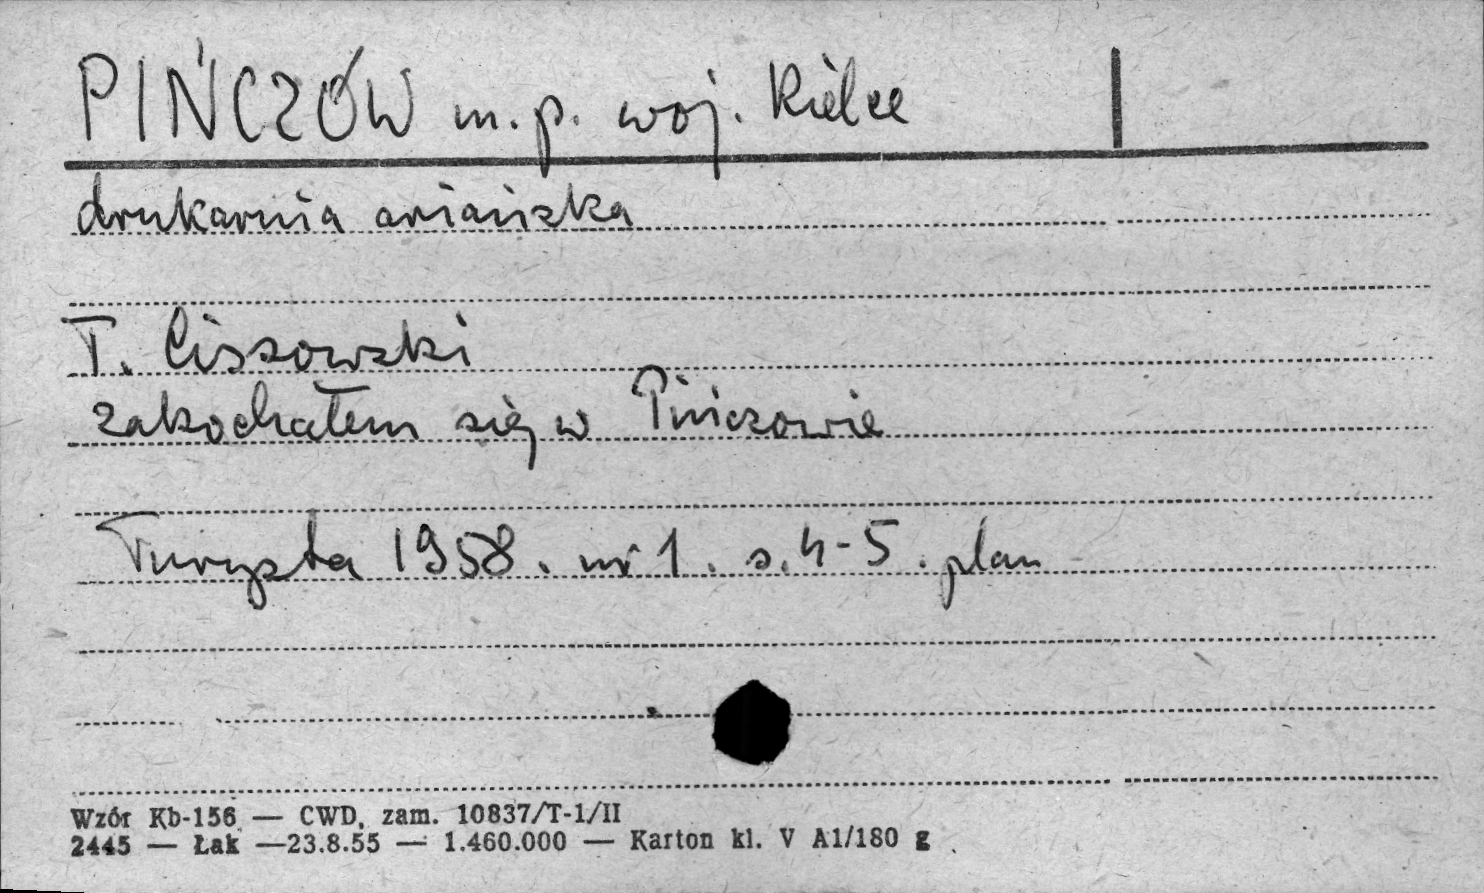 PIŃCZÓW m. p. woj. Kielce
drukarnia ariańska
T. Cissowski
zakochałem się w Pińczowie
Turysta 1958. nr 1. s. 4-5. plan
Wzór Kb-156 — CWD, zam. 10837/T-1/II
2445 — Łak —23.8.55 — 1.460.000 — Karton kl. V A1/180 g